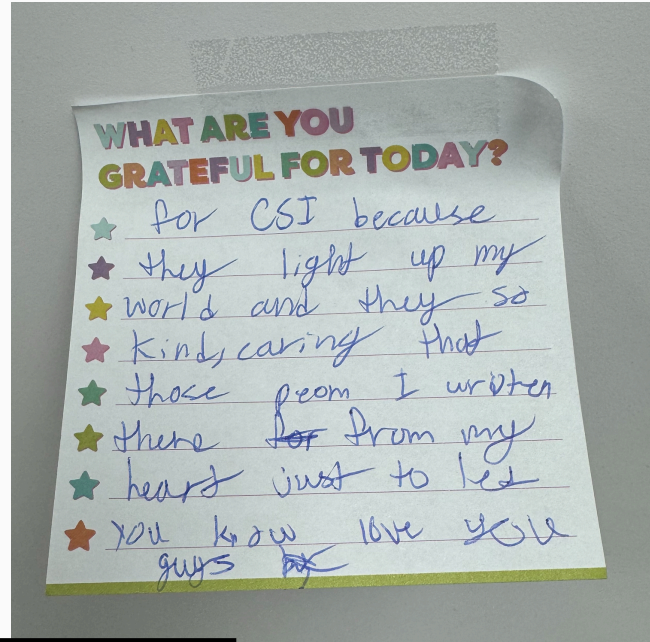 WHAT ARE YOU
GRATEFUL FOR TODAY?
for CSI because
they light up my
world and they so
kind, caring that
those peom I written
there from my
heart just to let
you know love you
guys